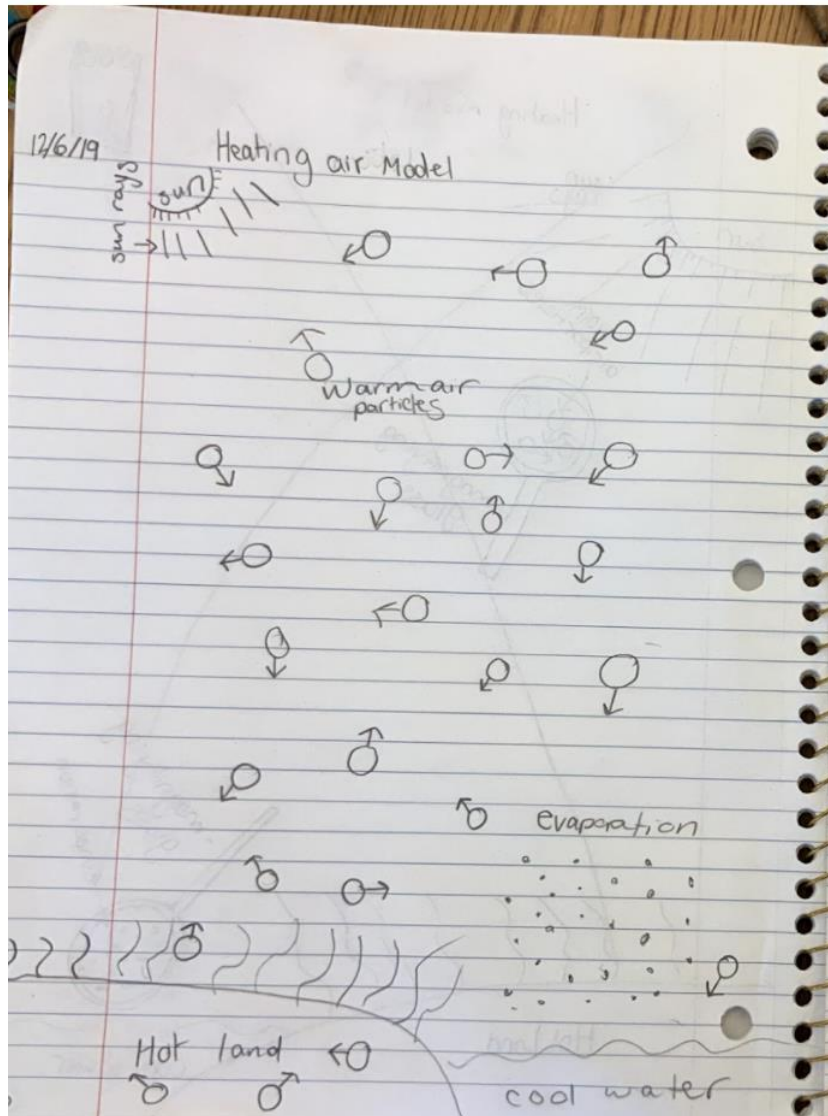 12/6/19
Heating air Model
sun
sun rays
Warm air
particles
evaporation
Hot land
cool water